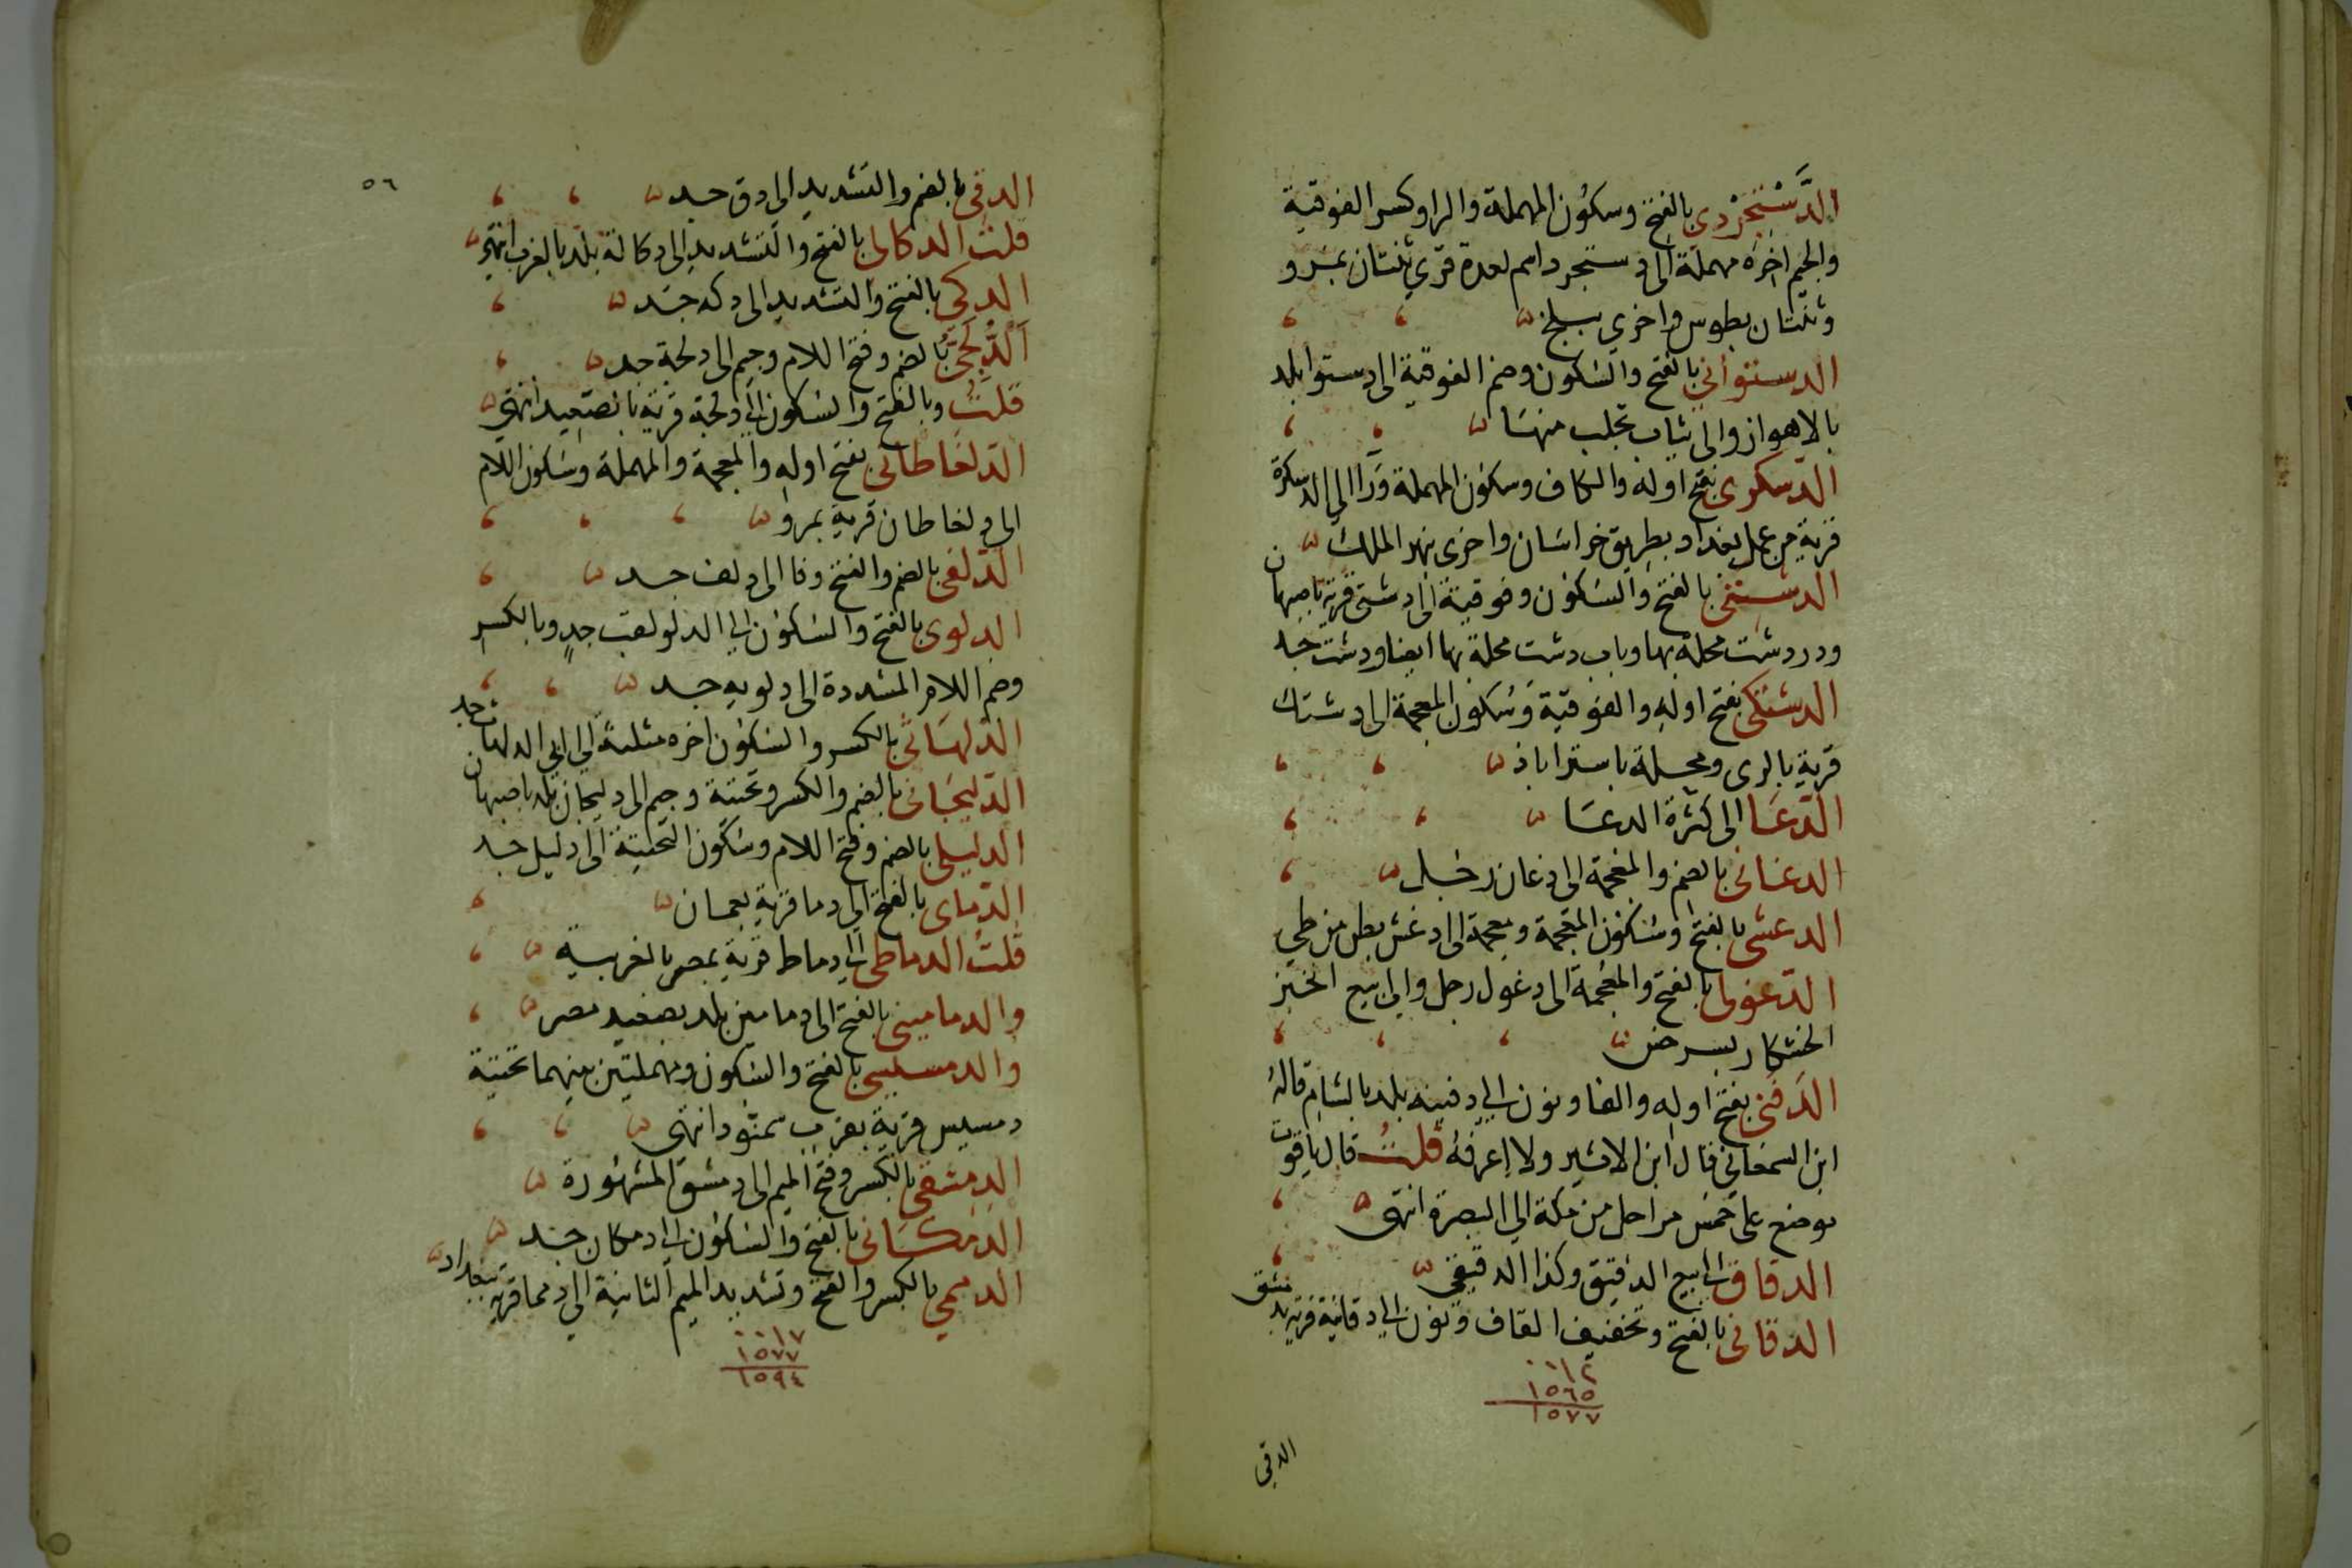 الدَّسْتَجِرْدي بالفتح وسكون المهملة والرا وكسر الفوقية
والجيم اخره مهملة الى دستجرد اسم لعدة قري ثنتان بمرو
وثنتان بطوس واخري ببلخ
الدستوائي بالفتح والسكون وضم الفوقية الى دستوا بلد
بالاهواز والى ثياب تجلب منها
الدسكري بفتح اوله والكاف وسكون المهملة ورا الى الدسكرة
قرية من عمل بغداد بطريق خراسان واخرى بنهر الملك
الدشتي بالفتح والسكون وفوقية الى دشتى قرية باصبهان
ودردشت محلة بها وباب دشت محلة بها ايضا ودشت جد
الدشتكي بفتح اوله والفوقية وسكون المعجمة الى دشتك
قرية بالرى ومحلة باستراباذ
الدّعا الى كثرة الدعا
الدغاني بالضم والمعجمة الى دغان رجل
الدغشي بالفتح وسكون المعجمة ومعجمة الى دغش بطن من طي
الدغولي بالفتح والمعجمة الى دغول رجل والى بيع الخبز
الخشكار بسرخس
الدَفَني بفتح اوله والفا ونون الى دفينه بلد بالشام قاله
ابن السمعاني قال ابن الاثير ولا اعرفه قلت قال ياقوت
موضع على خمس مراحل من مكة الى البصرة انتهى
الدقاق الى بيع الدقيق وكذا الدقيقي
الدقاني بالفتح وتخفيف القاف ونون الى دقانية قرية بدمشق
٠٠١٢
١٥٦٥
١٥٧٧
الدقي
٥٦
الدقي بالضم والتشديد الى دق جد
قلت الدكالى بالفتح والتشديد الى دكالة بلد بالغرب انتهى
الدكي بالفتح والتشديد الى دكه جد
الدُّلَجيّ بالضم وفتح اللام وجيم الى دلجة جد
قلت وبالفتح والسكون الى دلجة قرية بالصعيد انتهى
الدلغاطاني بفتح اوله والمعجمة والمهملة وسكون اللام
الى دلغاطان قرية بمرو
الدلفي بالضم والفتح وفا الى دلف جد
الدلوى بالفتح والسكون الى الدلو لقب جد وبالكسر
وضم اللام المشددة الى دلويه جد
الدلهاثي بالكسر والسكون اخره مثلثة الى ابي الدلهاث جد
الدليجاني بالضم والكسر وتحتية وجيم الى دليجان بلد باصبهان
الدليلي بالضم وفتح اللام وسكون التحتية الى دليل جد
الدماى بالفتح الى دما قرية بعمان
قلت الدماطي الى دماط قرية بمصر بالغربية
والدماميني بالفتح الى دمامين بلد بصعيد مصر
والدمسيسي بالفتح والسكون ومهملتين بينهما تحتية
دمسيس قرية بقرب سمنود انتهى
الدمشقي بالكسر وفتح الميم الى دمشق المشهورة
الدمكاني بالفتح والسكون الى دمكان جد
الدممي بالكسر والفتح وتشديد الميم الثانية الى دمما قرية ببغداد
٠٠١٧
١٥٧٧
١٥٩٤